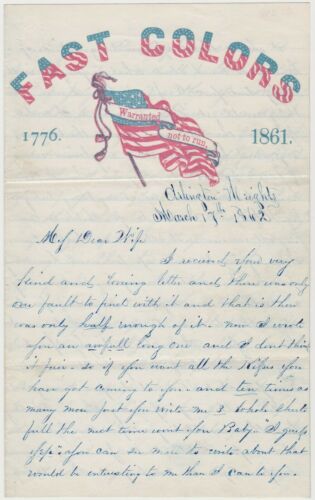 FAST COLORS
Warranted
not to run.
1776. 1861.
Arlington Hights
March 17th 1862
My Dear Wife
I received your very
kind and loving letter and there was only
one fault to find with it and that is there
was only half enough of it. now I wrote
you an awfull long one and I dont think
it fair. so if you want all the Kisses you
have got coming to you. and ten times as
many more just you write me 3 whole sheets
full the next time wont you Baby. "I guess
yes" you can se more to write about that
would be intresting to me than I can to you.